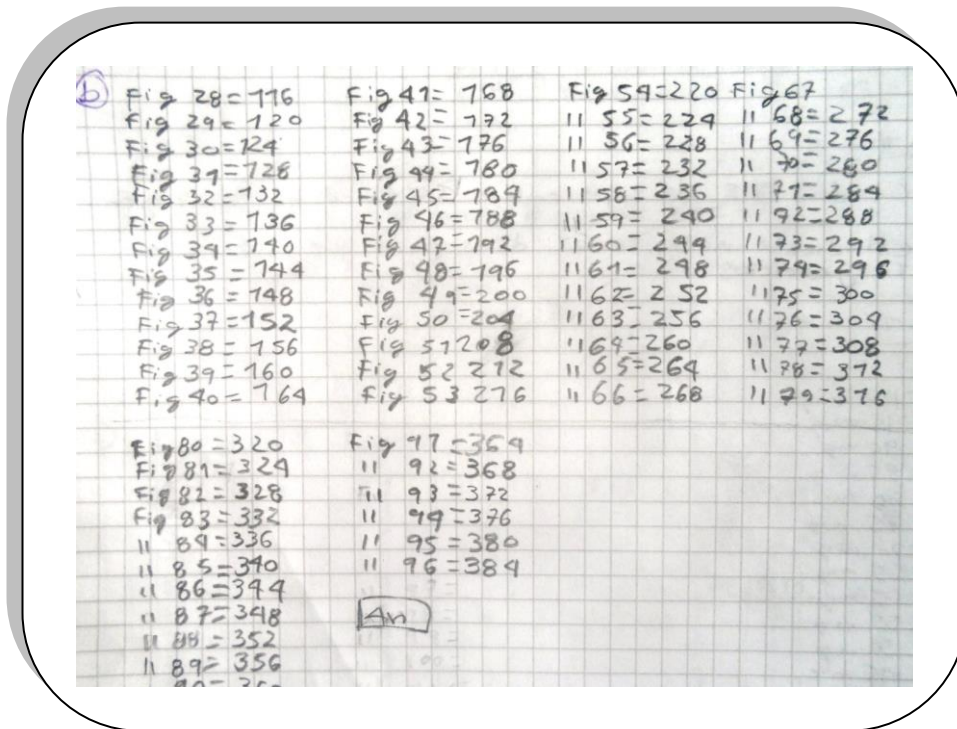 b
Fig 28=116
Fig 29=120
Fig 30=124
Fig 31=128
Fig 32=132
Fig 33=136
Fig 34=140
Fig 35=144
Fig 36=148
Fig 37=152
Fig 38=156
Fig 39=160
Fig 40=164
Fig 41=168
Fig 42=172
Fig 43=176
Fig 44=180
Fig 45=184
Fig 46=188
Fig 47=192
Fig 48=196
Fig 49=200
Fig 50=204
Fig 51 208
Fig 52 212
Fig 53 216
Fig 54=220
11 55=224
11 56=228
11 57=232
11 58=236
11 59=240
11 60=244
11 61=248
11 62=252
11 63=256
11 64=260
11 65=264
11 66=268
Fig 67
11 68=272
11 69=276
11 70=280
11 71=284
11 72=288
11 73=292
11 74=296
11 75=300
11 76=304
11 77=308
11 78=312
11 79=316
Fig 80=320
Fig 81=324
Fig 82=328
Fig 83=332
11 84=336
11 85=340
11 86=344
11 87=348
11 88=352
11 89=356
Fig 91=364
11 92=368
11 93=372
11 94=376
11 95=380
11 96=384
An